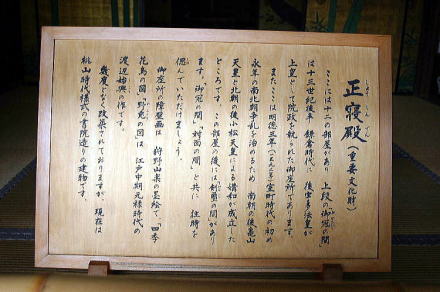 正寝殿（重要文化財）
しょうしんでん
ここには十二の部屋があり 上段の御冠の間
は十三世紀後半 鎌倉時代に 後宇多法皇が
上皇として院政を執られた御座所であります。
また、ここは明徳三年（一三九二年）室町時代の初め
永年の南北朝争乱を治めるため 南朝の後亀山
天皇と北朝の後小松天皇による講和が成立した
ところです。この部屋の後には、剣璽の間があり
ます。「御冠の間」「対面の間」と共に 往時を
偲んでいただけましょう
御座所の障壁画は 狩野山楽の墨絵で、四季
花鳥の図「野兎の図」は 江戸中期元禄時代の
渡辺始興の作です。
幾度となく改築されておりますが、現在は
桃山時代様式の書院造りの建物です。